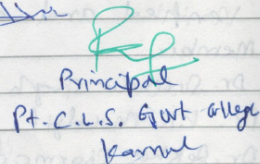 Principal
Pt. C.L.S. Govt College
Karnal